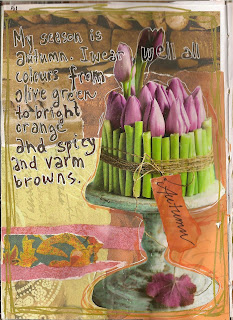 My season is
autumn. I wear well all
colours from
olive green
to bright
orange
and spicy
and varm
browns.
Autumn